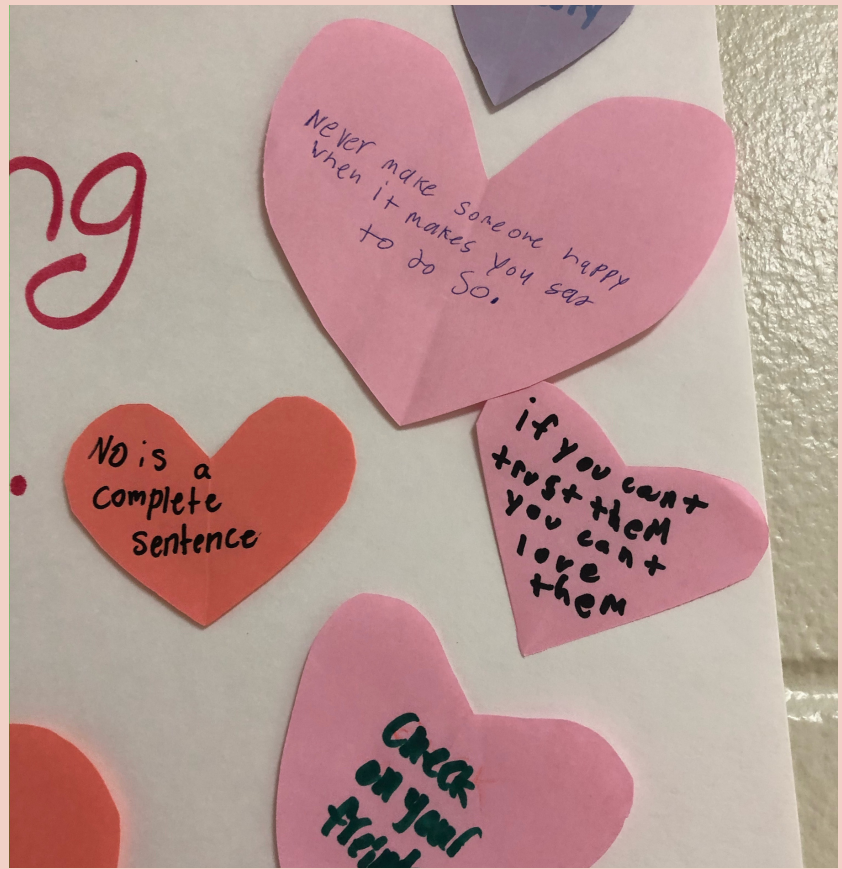 Never make someone happy
when it makes you sad
to do so.
ng
.
NO is a
complete
sentence
if you can't
trust them
you can't
love
them
Check
on your